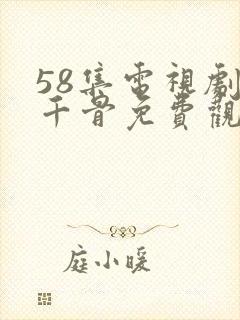 58集電視劇
千骨免費觀
庭小暖